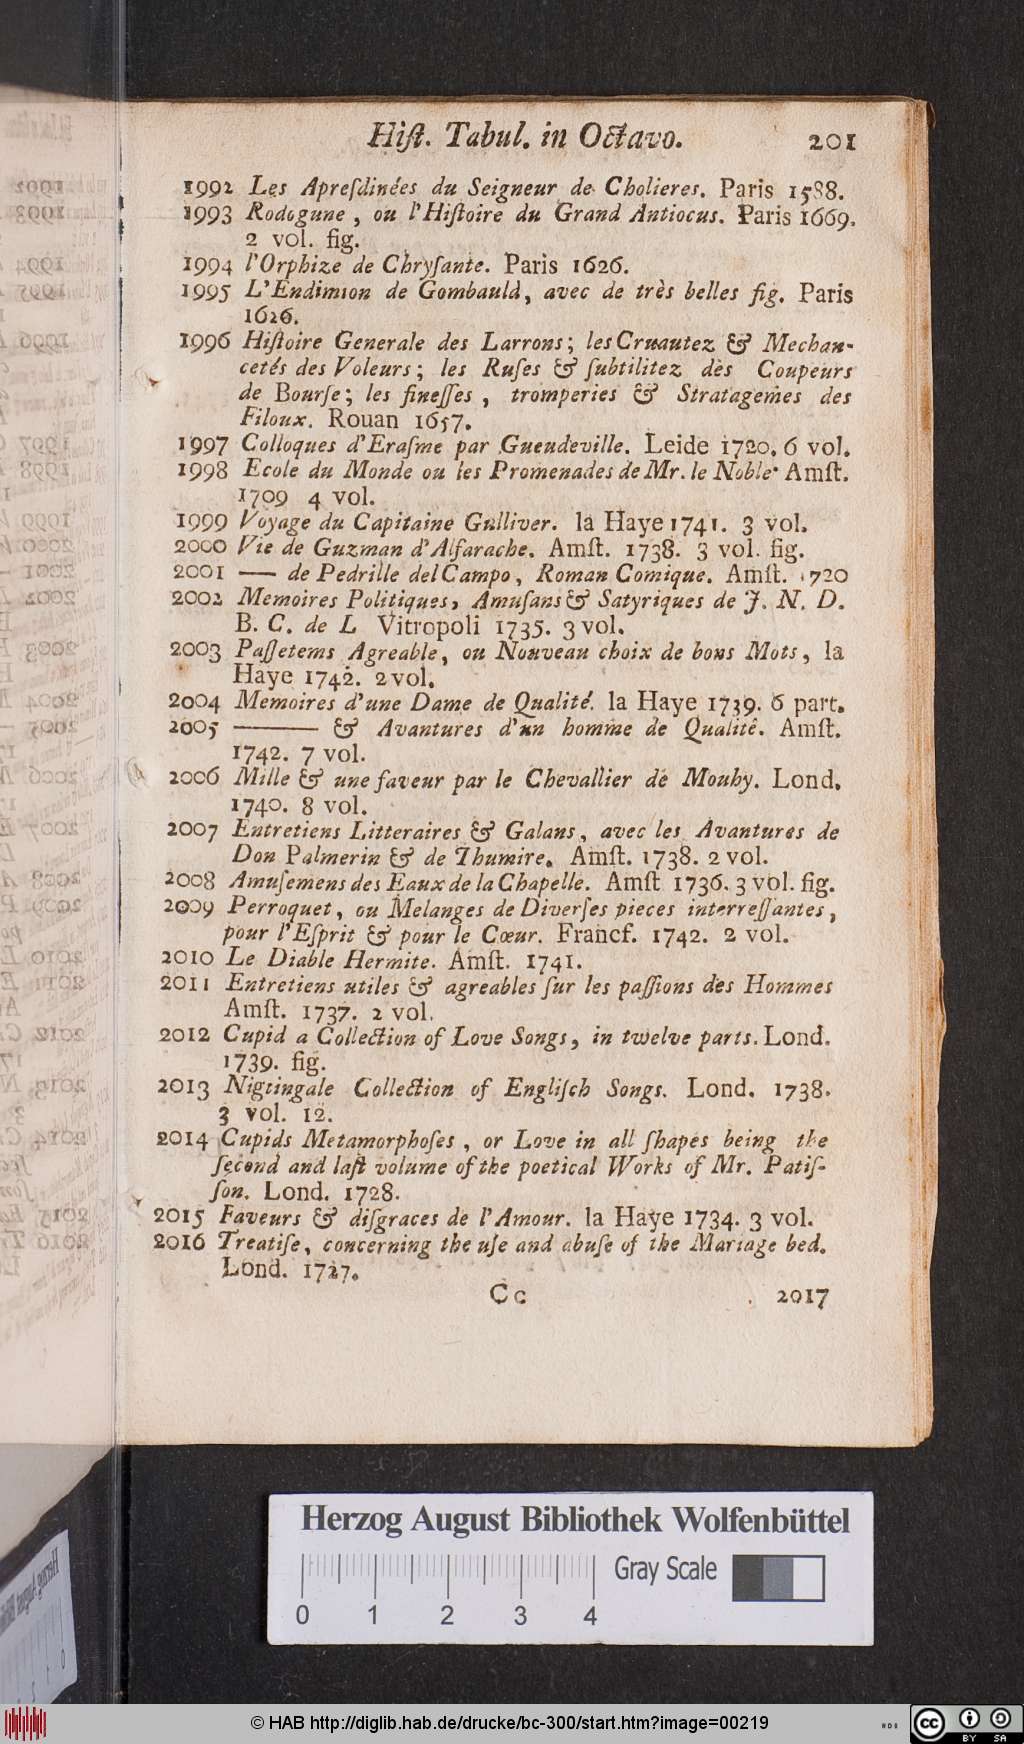 Hiſt. Tabul. in Octavo. 201
1992 Les Apreſdinées du Seigneur de Cholieres. Paris 1588.
1993 Rodogune, ou l'Hiſtoire du Grand Antiocus. Paris 1669.
2 vol. fig.
1994 l'Orphize de Chryſante. Paris 1626.
1995 L'Endimion de Gombauld, avec de très belles fig. Paris
1626.
1996 Hiſtoire Generale des Larrons; les Cruautez & Mechan-
cetés des Voleurs; les Ruſes & ſubtilitez des Coupeurs
de Bourſe; les fineſſes, tromperies & Stratagemes des
Filoux. Rouan 1657.
1997 Colloques d'Eraſme par Gueudeville. Leide 1720. 6 vol.
1998 Ecole du Monde ou les Promenades de Mr. le Noble. Amſt.
1709 4 vol.
1999 Voyage du Capitaine Gulliver. la Haye 1741. 3 vol.
2000 Vie de Guzman d'Alfarache. Amſt. 1738. 3 vol. fig.
2001 — de Pedrille del Campo, Roman Comique. Amſt. 1720
2002 Memoires Politiques, Amuſans & Satyriques de J. N. D.
B. C. de L Vitropoli 1735. 3 vol.
2003 Paſſetems Agreable, ou Nouveau choix de bons Mots, la
Haye 1742. 2 vol.
2004 Memoires d'une Dame de Qualité. la Haye 1739. 6 part.
2005 ——— & Avantures d'un homme de Qualité. Amſt.
1742. 7 vol.
2006 Mille & une faveur par le Chevallier de Mouhy. Lond.
1740. 8 vol.
2007 Entretiens Litteraires & Galans, avec les Avantures de
Don Palmerin & de Thumire. Amſt. 1738. 2 vol.
2008 Amuſemens des Eaux de la Chapelle. Amſt 1736. 3 vol. fig.
2009 Perroquet, ou Melanges de Diverſes pieces interreſſantes,
pour l'Eſprit & pour le Cœur. Francf. 1742. 2 vol.
2010 Le Diable Hermite. Amſt. 1741.
2011 Entretiens utiles & agreables ſur les paſſions des Hommes
Amſt. 1737. 2 vol.
2012 Cupid a Collection of Love Songs, in twelve parts. Lond.
1739. fig.
2013 Nigtingale Collection of Engliſch Songs. Lond. 1738.
3 vol. 12.
2014 Cupids Metamorphoſes, or Love in all ſhapes being the
ſecond and laſt volume of the poetical Works of Mr. Patiſ-
ſon. Lond. 1728.
2015 Faveurs & diſgraces de l'Amour. la Haye 1734. 3 vol.
2016 Treatiſe, concerning the uſe and abuſe of the Mariage bed.
Lond. 1727.
Cc 2017
Herzog August Bibliothek Wolfenbüttel
Gray Scale
0 1 2 3 4
© HAB http://diglib.hab.de/drucke/bc-300/start.htm?image=00219
cc BY SA